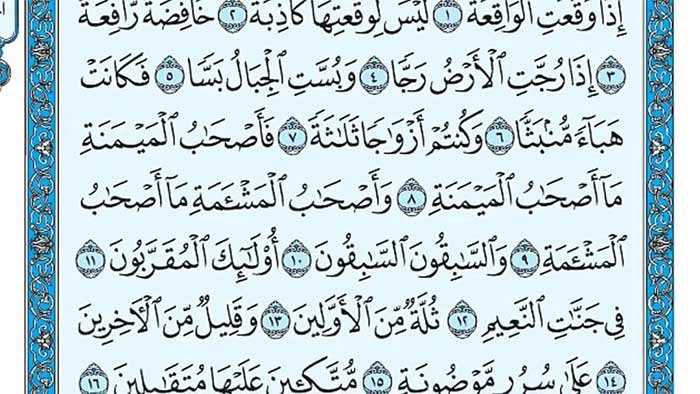 إِذَا وَقَعَتِ الْوَاقِعَةُ ١ لَيْسَ لِوَقْعَتِهَا كَاذِبَةٌ ٢ خَافِضَةٌ رَّافِعَةٌ
٣ إِذَا رُجَّتِ الْأَرْضُ رَجًّا ٤ وَبُسَّتِ الْجِبَالُ بَسًّا ٥ فَكَانَتْ
هَبَاءً مُّنْبَثًّا ٦ وَكُنْتُمْ أَزْوَاجًا ثَلَاثَةً ٧ فَأَصْحَابُ الْمَيْمَنَةِ
مَا أَصْحَابُ الْمَيْمَنَةِ ٨ وَأَصْحَابُ الْمَشْئَمَةِ مَا أَصْحَابُ
الْمَشْئَمَةِ ٩ وَالسَّابِقُونَ السَّابِقُونَ ١٠ أُولَٰئِكَ الْمُقَرَّبُونَ ١١
فِي جَنَّاتِ النَّعِيمِ ١٢ ثُلَّةٌ مِّنَ الْأَوَّلِينَ ١٣ وَقَلِيلٌ مِّنَ الْآخِرِينَ
١٤ عَلَىٰ سُرُرٍ مَّوْضُونَةٍ ١٥ مُّتَّكِئِينَ عَلَيْهَا مُتَقَابِلِينَ ١٦